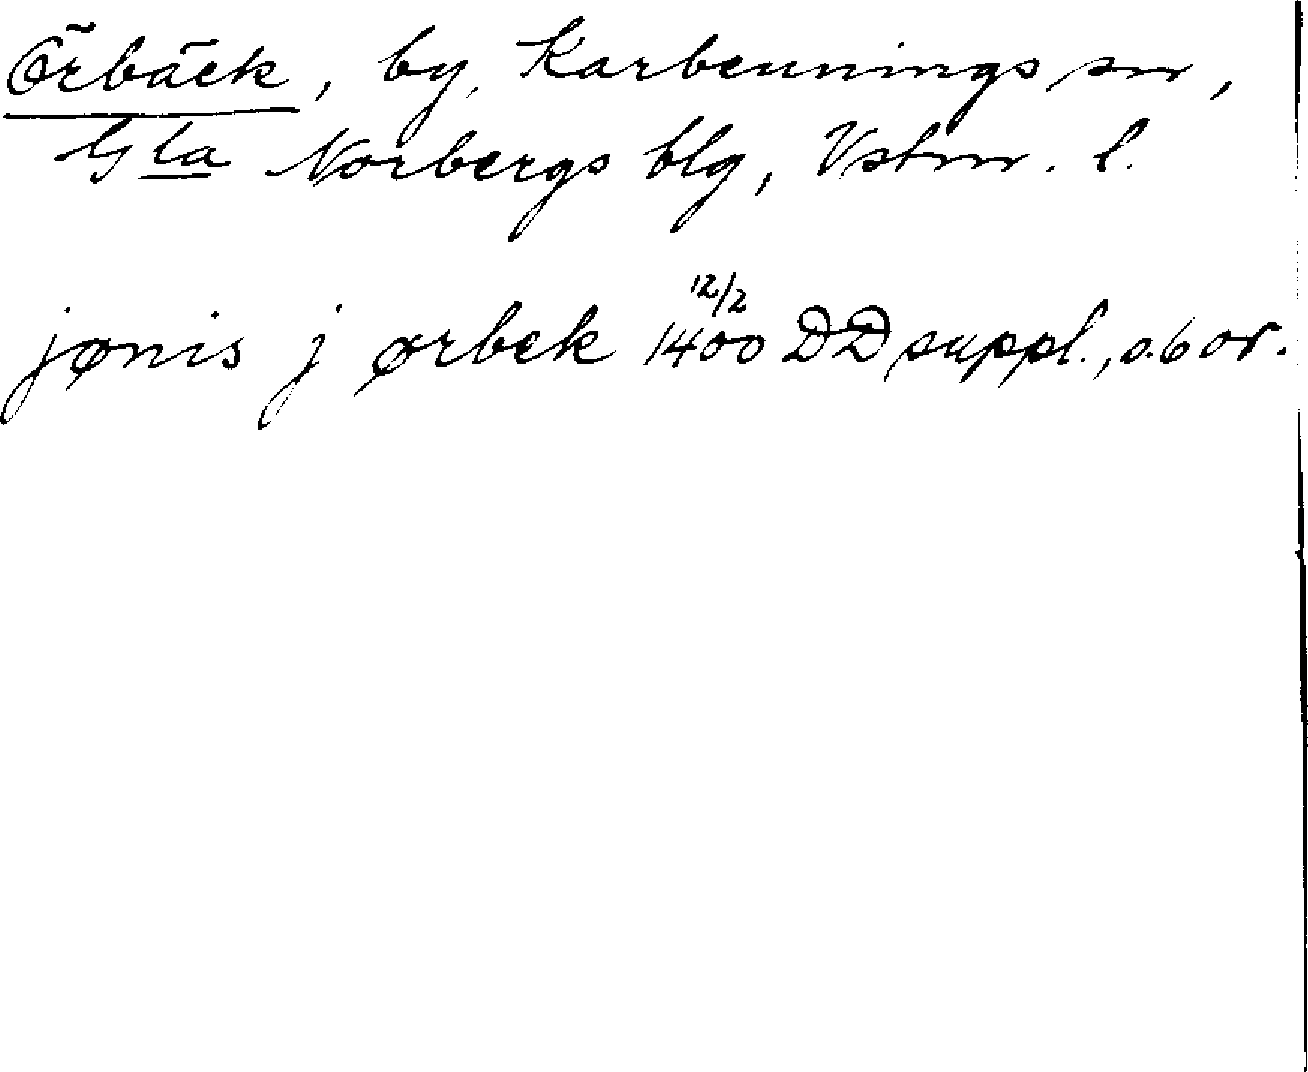 Örbäck, by, Karbennings sn,
Gla Norbergs blg, Vstm. l.
jønis j ørbek 12/2 1400 DD suppl., s. 6 or.